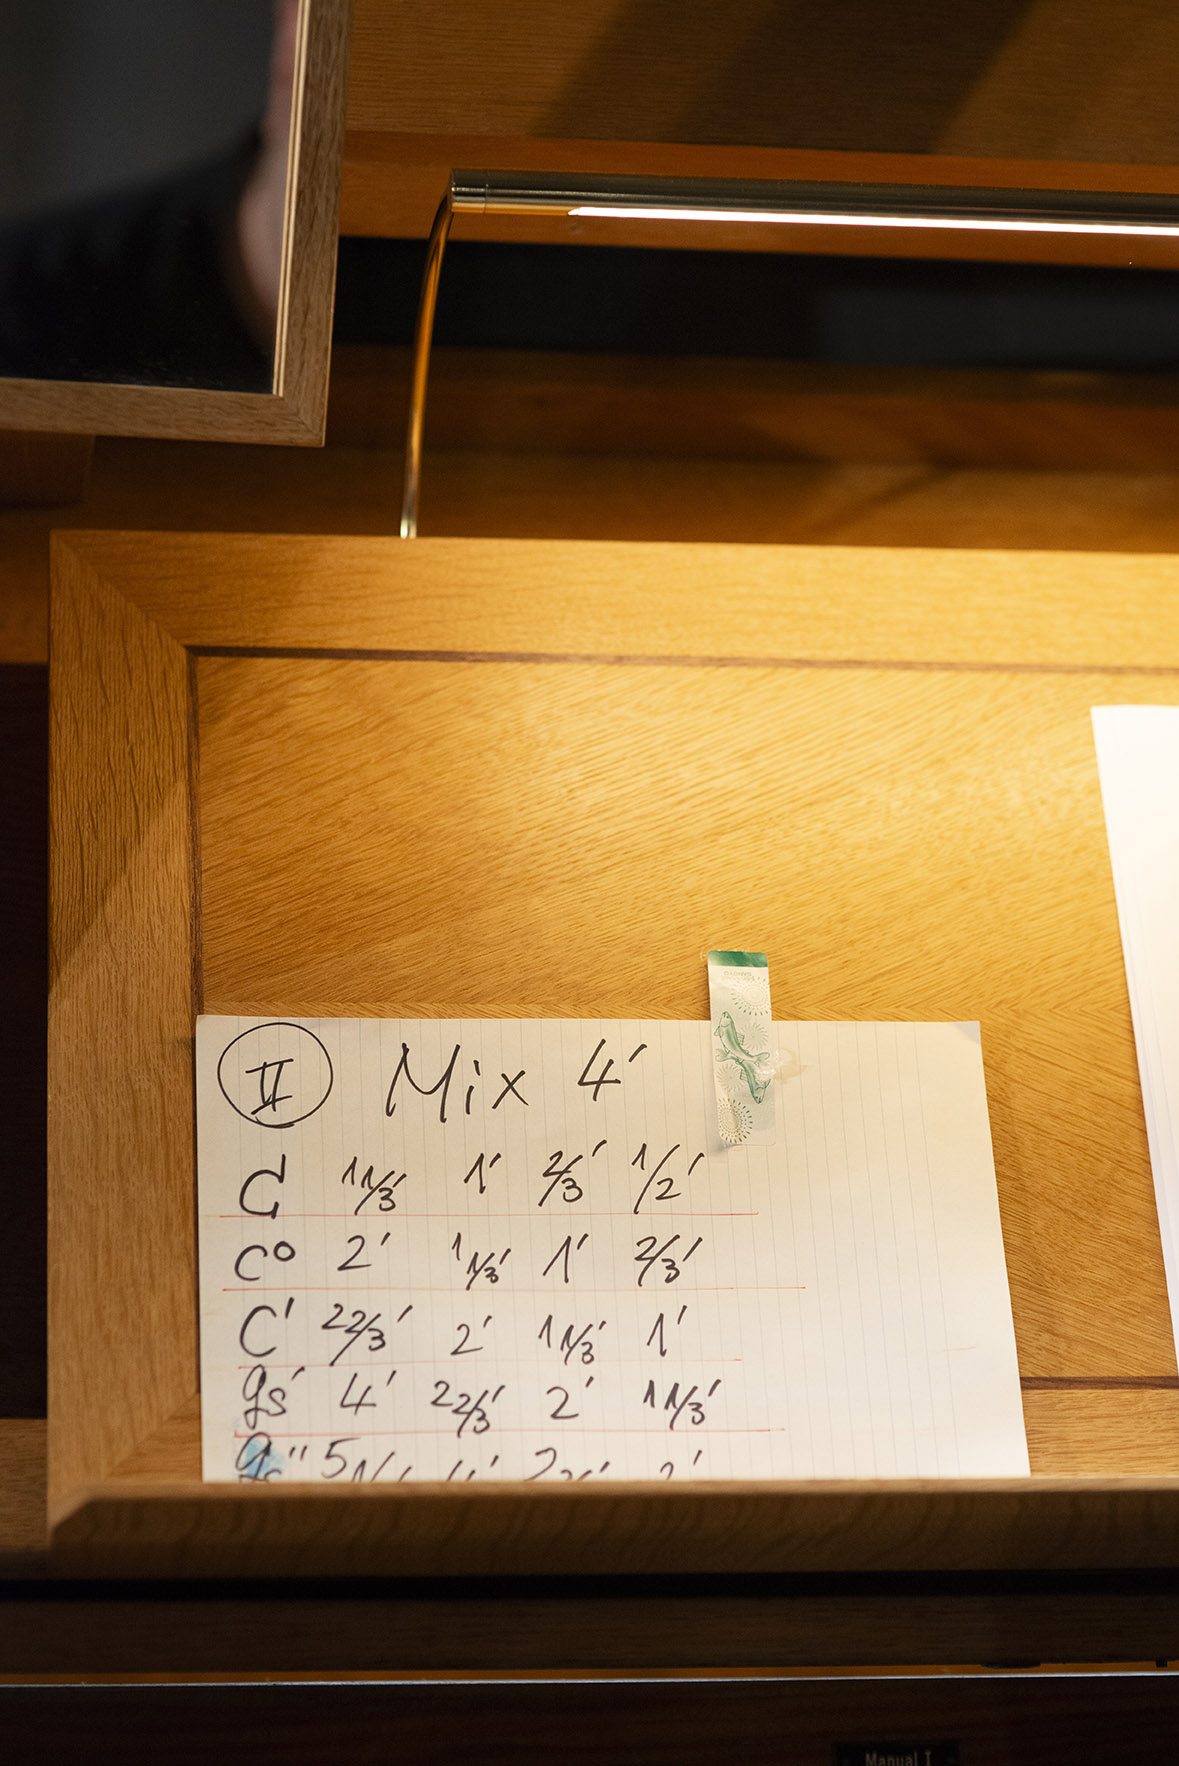 II Mix 4′
C 1 1/3′ 1′ 2/3′ 1/2′
c° 2′ 1 1/3′ 1′ 2/3′
C′ 2 2/3′ 2′ 1 1/3′ 1′
gs′ 4′ 2 2/3′ 2′ 1 1/3′
gs″ 5
Manual I